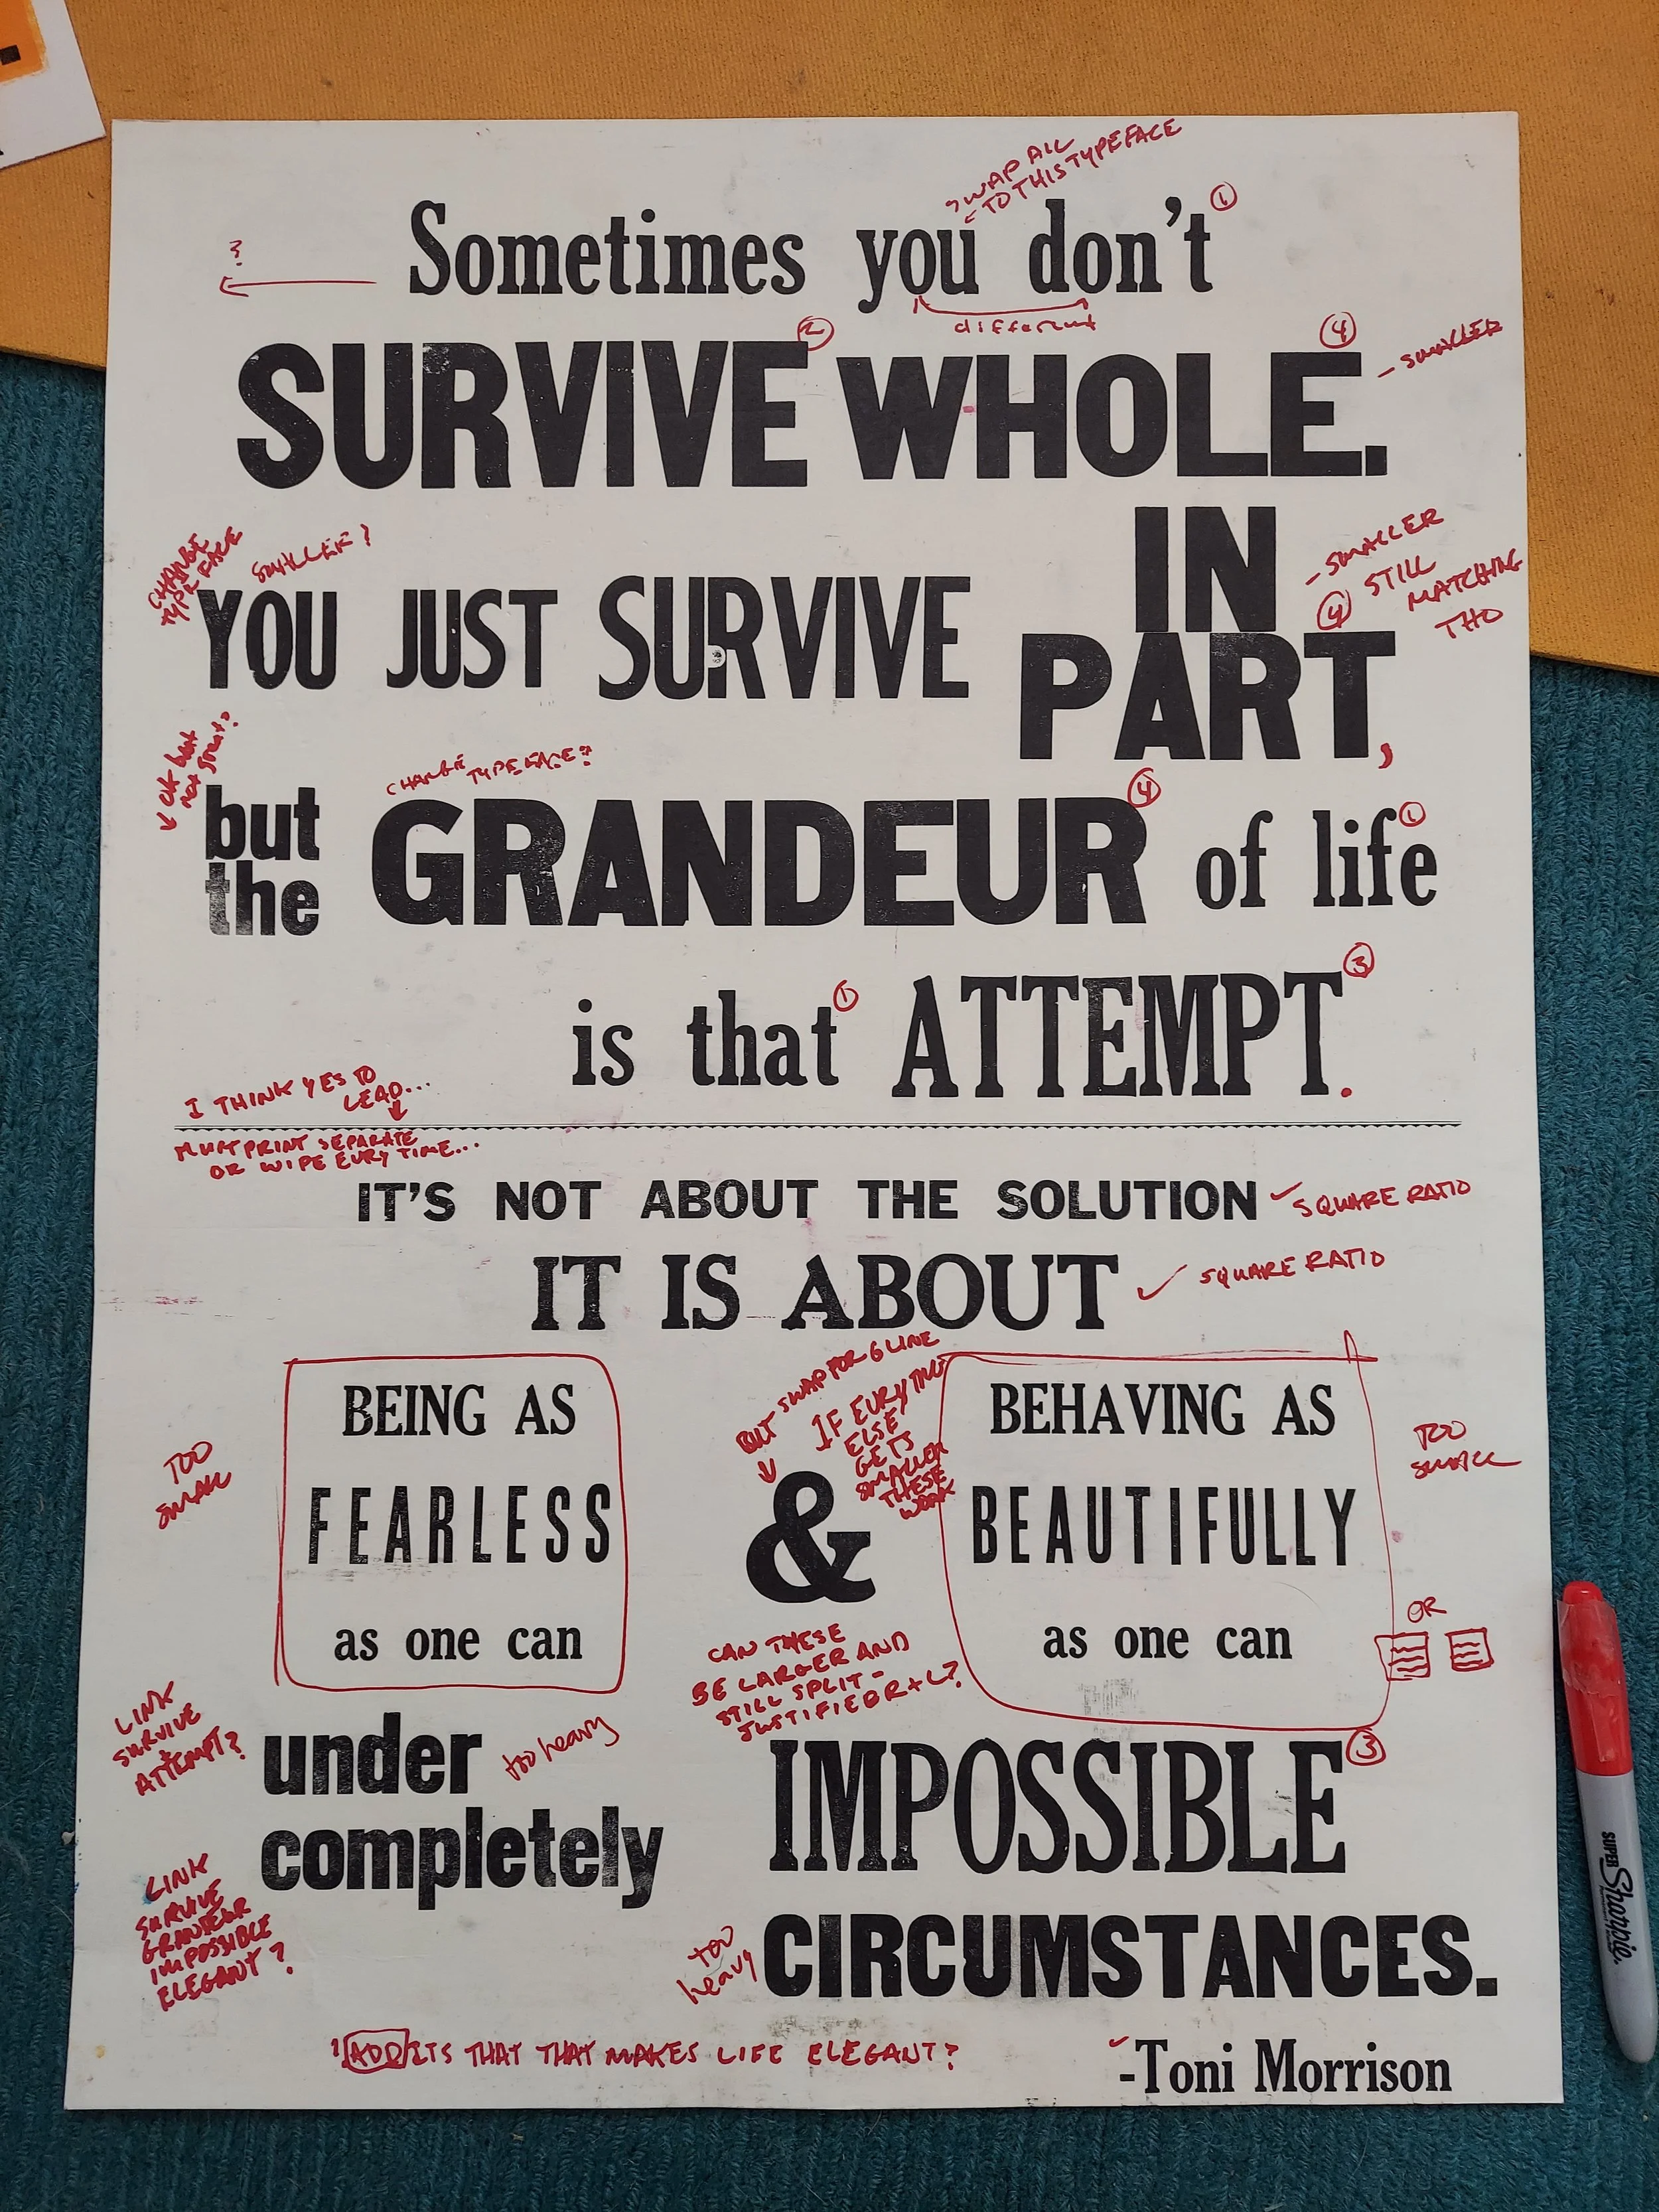 SWAP ALL
TO THIS TYPEFACE
Sometimes you don't ①
?
different
SURVIVE ② WHOLE. ④
- SMALLER
CHANGE
TYPEFACE
SMALLER?
YOU JUST SURVIVE
IN
PART,
- SMALLER
④ STILL
MATCHING
THO
but
the
CHANGE TYPEFACE?
GRANDEUR ④ of life ①
is that ① ATTEMPT. ③
I THINK YES TO
LEAD...
MUST PRINT SEPARATE
OR WIPE EURY TIME...
IT'S NOT ABOUT THE SOLUTION
SQUARE RATIO
IT IS ABOUT
SQUARE RATIO
BUT SWAP FOR 6 LINE
IF EURYTHING
ELSE
GETS
SMALLER
THESE
WORK
TOO
SMALL
BEING AS
FEARLESS
as one can
&
BEHAVING AS
BEAUTIFULLY
as one can
TOO
SMALL
OR
CAN THESE
BE LARGER AND
STILL SPLIT -
JUSTIFIED R+L?
LINK
SURVIVE
+
ATTEMPT?
under
completely
too heavy
IMPOSSIBLE ③
LINK
SURVIVE
GRANDEUR
IMPOSSIBLE
ELEGANT?
too
heavy
CIRCUMSTANCES.
ADD ITS THAT THAT MAKES LIFE ELEGANT?
-Toni Morrison
SUPER Sharpie